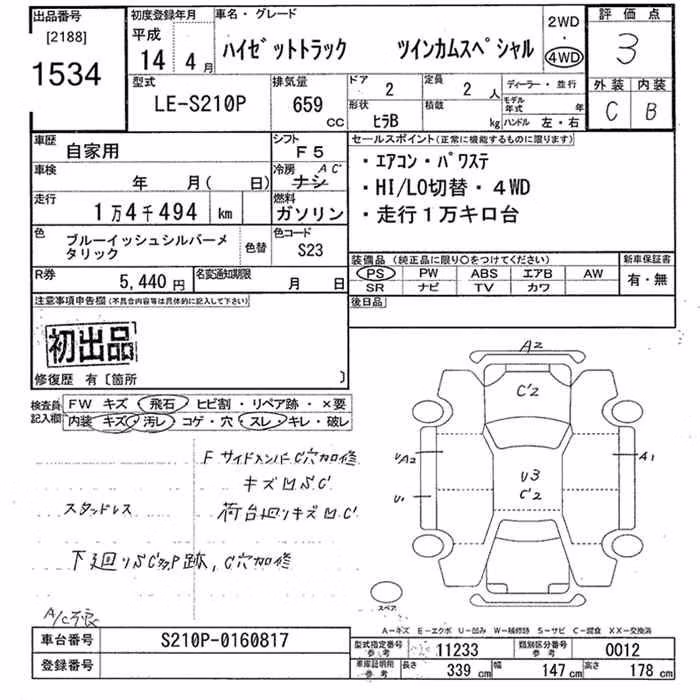 出品番号 初度登録年月 車名・グレード 2WD 評価点
[2188] 平成 ハイゼットトラック ツインカムスペシャル ・ 3
1534 14年 4月 4WD
型式 排気量 ドア 定員 ディーラー・並行 外装 内装
LE-S210P 659cc 2 2人 モデル年式 年 C B
形状 積載
ヒラB kg ハンドル 左・右
車歴 自家用 シフト F5 セールスポイント(正常に機能するものに限ります)
車検 年 月( 日) 冷房 AC ナシ ・エアコン・パワステ
走行 1万4千494 km 燃料 ガソリン ・HI/LO切替・4WD
・走行1万キロ台
色 ブルーイッシュシルバーメタリック 色替 色コード S23
装備品(純正品に限り○をつけてください) 新車保証書
PS PW ABS エアB AW 有・無
SR ナビ TV カワ
R券 5,440円 名変通知期限 月 日
後日品
注意事項申告欄(不具合内容等は具体的に記入して下さい)
初出品
修復歴 有〔箇所 〕
検査員記入欄 FW キズ・飛石・ヒビ割・リペア跡・×要
内装 キズ・汚レ・コゲ・穴・スレ・キレ・破レ
F サイドメンバー C穴加修
キズ凹SC
スタッドレス 荷台廻りキズ凹C
下廻りSC タッP跡, C穴加修
A/C不良
A2
C2
UA2
A1
U3
C2
U1
スペア
A-キズ E-エクボ U-凹み W-補修跡 S-サビ C-腐食 XX-交換済
車台番号 S210P-0160817
登録番号
型式指定番号参考 11233 類別区分番号参考 0012
車庫証明用参考 長さ 339cm 幅 147cm 高さ 178cm